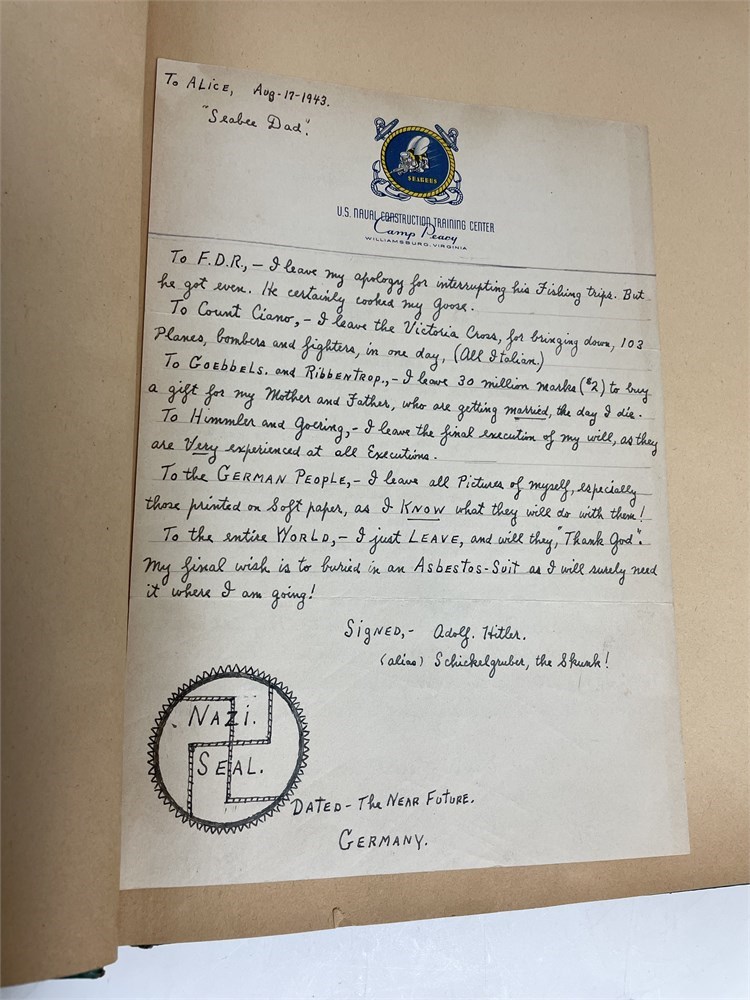 To ALicE, Aug-17-1943.
"Seabee Dad".
SEABEES
U.S. NAVAL CONSTRUCTION TRAINING CENTER
Camp Peary
WILLIAMSBURG, VIRGINIA
To F.D.R., – I leave my apology for interrupting his Fishing trips. But
he got even. He certainly cooked my Goose.
To Count Ciano, – I leave the Victoria Cross, for bringing down, 103
Planes, bombers and fighters, in one day, (All Italian.)
To GOEBBELS. and RiBBENTROP., – I leave 30 million marks ($2) to buy
a gift for my Mother and Father, who are getting married, the day I die.
To Himmler and Goering, – I leave the final execution of my will, as they
are Very experienced at all Executions.
To the GERMAN PEOPLE, – I leave all Pictures of myself, especially
those printed on Soft paper, as I KNOW what they will do with them!
To the entire WORLD, – I just LEAVE, and will they, "Thank God".
My final wish is to buried in an Asbestos-Suit as I will surely need
it where I am going!
SiGNED, – Adolf. Hitler.
(alias) Schickelgruber, the Skunk!
NAZi.
SEAL.
DATED – The NEAR FUTURE.
GERMANY.